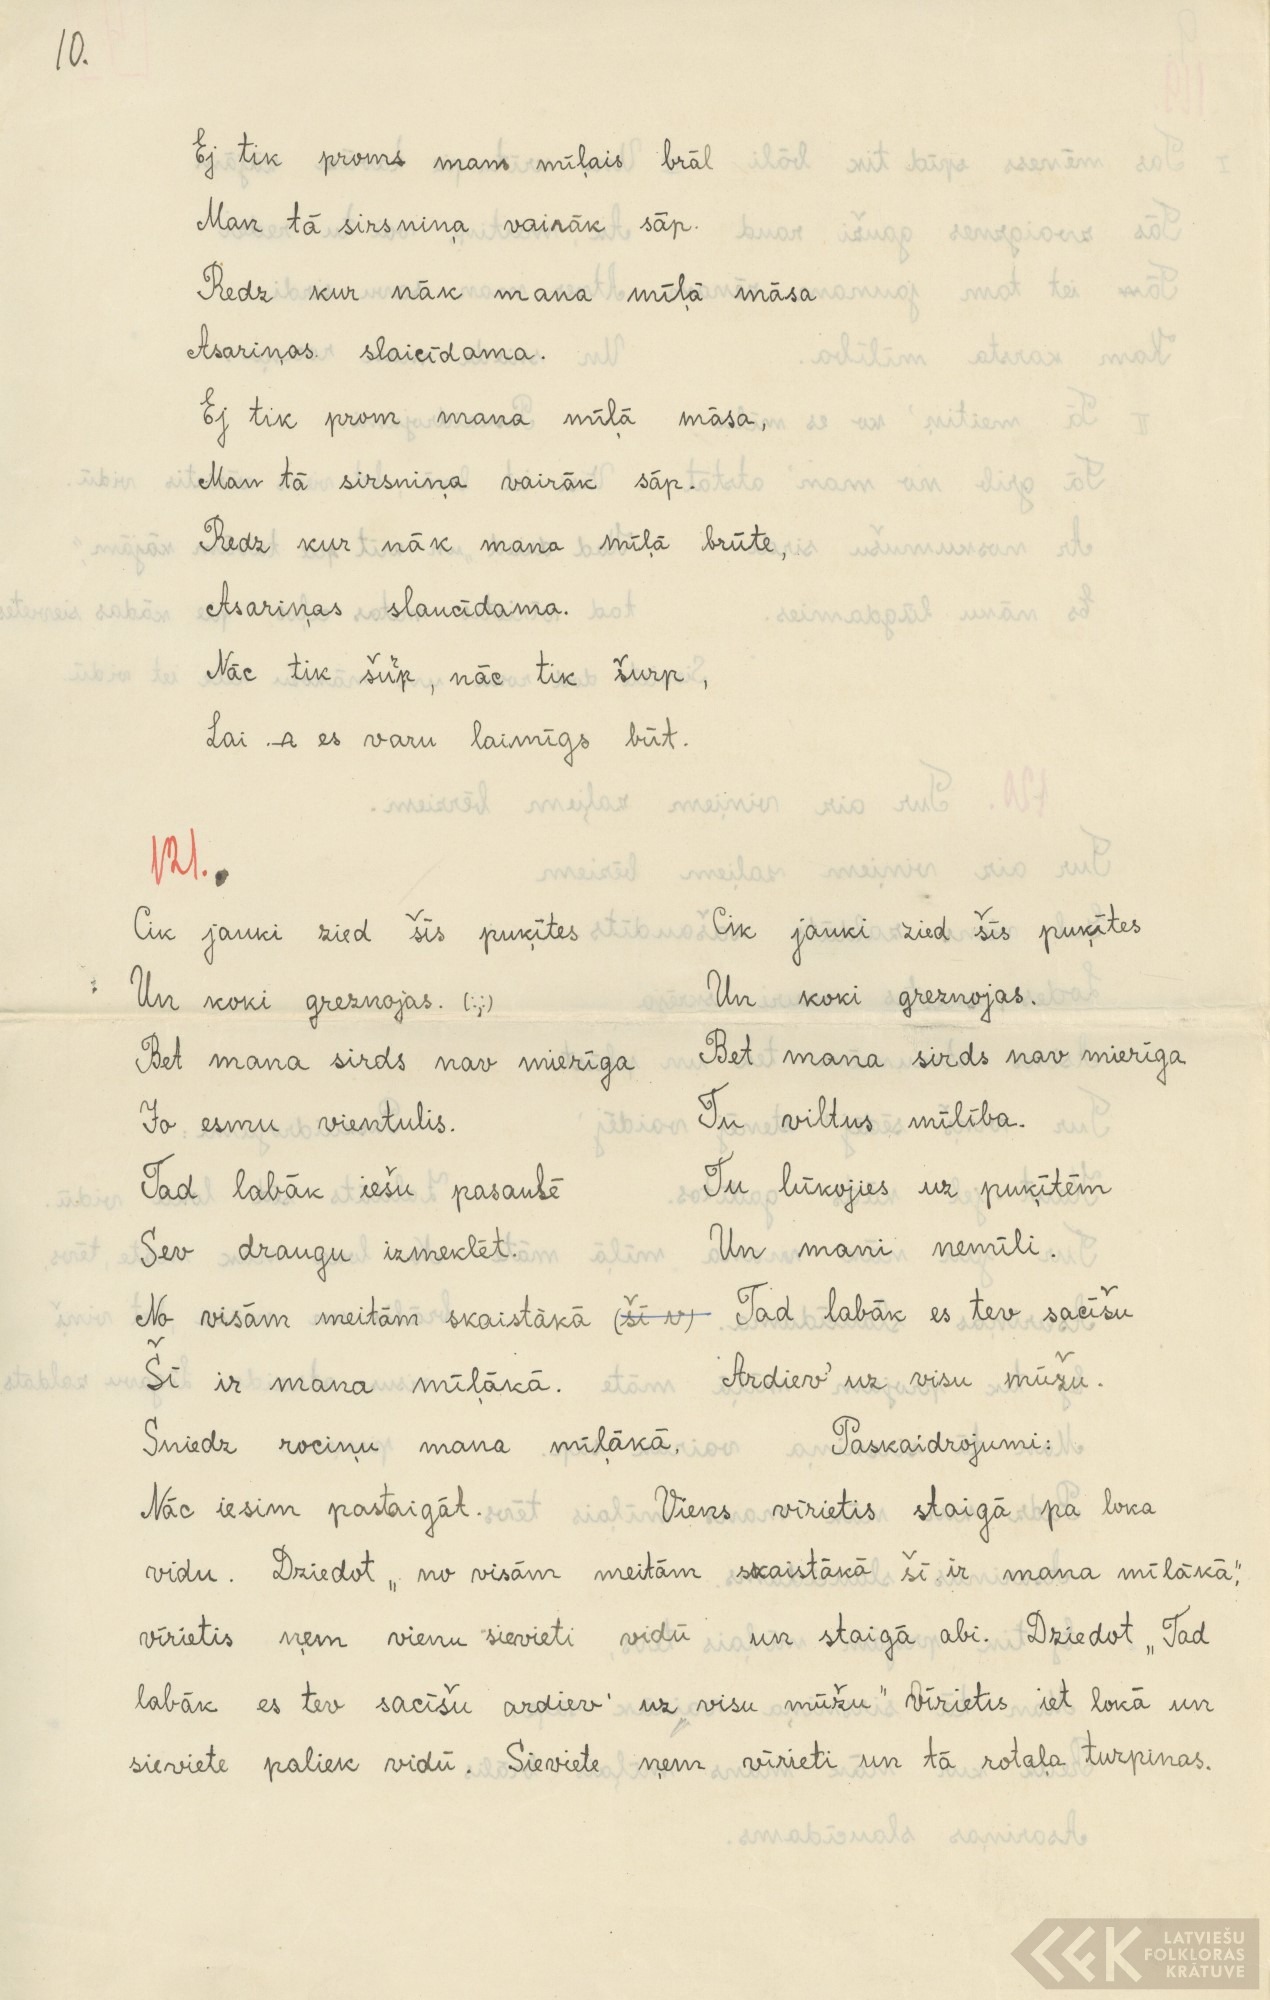 10.
Ej tik proms mans mīļais brāl
Man tā sirsniņa vairāk sāp.
Redz kur nāk mana mīļā māsa
Asariņas slaicīdama.
Ej tik prom mana mīļā māsa,
Man tā sirsniņa vairāk sāp.
Redz kur nāk mana mīļā brūte,
Asariņas slaucīdama.
Nāc tik šurp, nāc tik šurp,
Lai es varu laimīgs būt.
121.
Cik jauki zied šīs puķītes
Un koki greznojas. (:;:)
Bet mana sirds nav mierīga
Jo esmu vientulis.
Tad labāk iešu pasaulē
Sev draugu izmeklēt.
No visām meitām skaistākā (šī v)
Šī ir mana mīļākā.
Sniedz rociņu mana mīļākā,
Nāc iesim pastaigāt.
Cik jauki zied šīs puķītes
Un koki greznojas.
Bet mana sirds nav mierīga
Tu viltus mīlība.
Tu lūkojies uz puķītēm
Un mani nemīli.
Tad labāk es tev sacīšu
Ardiev' uz visu mūžu.
Paskaidrojumi:
Viens vīrietis staigā pa loka
vidu. Dziedot „no visām meitām skaistākā šī ir mana mīlākā",
vīrietis ņem vienu sievieti vidū un staigā abi. Dziedot „Tad
labāk es tev sacīšu ardiev' uz visu mūžu" vīrietis iet lokā un
sieviete paliek vidū. Sieviete ņem vīrieti un tā rotaļa turpinas.
LATVIEŠU
FOLKLORAS
KRĀTUVE